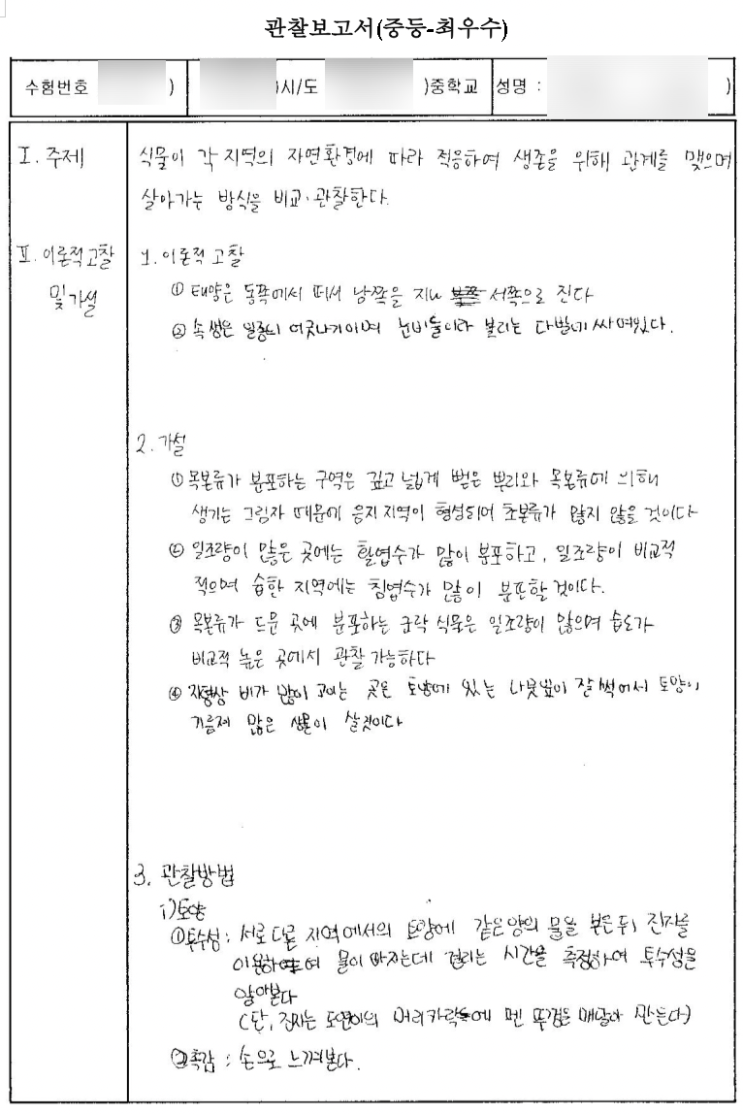 관찰보고서(중등-최우수)
수험번호 ) )시/도 )중학교 성명 : )
I. 주제 식물이 각 지역의 자연환경에 따라 적응하여 생존을 위해 관계를 맺으며
살아가는 방식을 비교·관찰한다.
II. 이론적고찰 및 가설
1. 이론적 고찰
① 태양은 동쪽에서 떠서 남쪽을 지나 서쪽으로 진다
② 속생은 잎종의 어긋나기이며 불리는 다발에 싸여있다.
2. 가설
① 목본류가 분포하는 구역은 깊고 넓게 뻗은 뿌리와 목본류에 의해
생기는 그림자 때문에 음지 지역이 형성되어 초본류가 많지 않을 것이다
② 일조량이 많은 곳에는 활엽수가 많이 분포하고, 일조량이 비교적
적으며 습한 지역에는 침엽수가 많이 분포할 것이다.
③ 목본류가 드문 곳에 분포하는 군락 식물은 일조량이 많으며 습도가
비교적 높은 곳에서 관찰 가능하다
④ 지형상 비가 많이 고이는 곳은 토양에 있는 나뭇잎이 잘 썩어서 토양이
기름져 많은 생물이 살것이다
3. 관찰방법
i)토양
①투수성 : 서로 다른 지역에서의 토양에 같은양의 물을 부은 뒤 진자를
이용하여 물이 빠지는데 걸리는 시간을 측정하여 투수성을
알아본다
(단, 진자는 머리카락에 펜 뚜껑을 매달아 만든다)
②촉감 : 손으로 느껴본다.